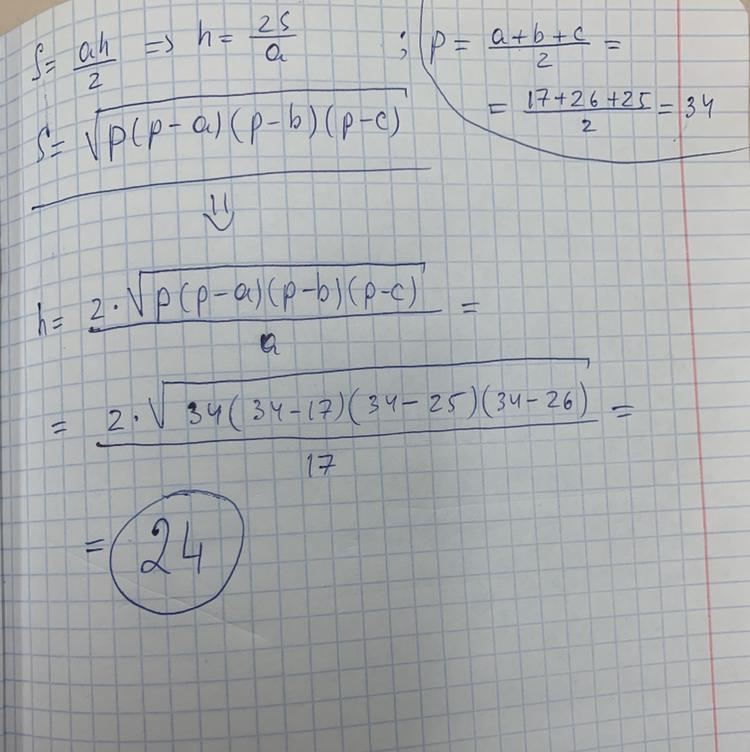 S = ah/2 => h = 2S/a ; p = (a+b+c)/2 =
= (17+26+25)/2 = 34
S = √(p(p-a)(p-b)(p-c))
⇓
h = (2·√(p(p-a)(p-b)(p-c)))/a =
= (2·√(34(34-17)(34-25)(34-26)))/17 =
= 24